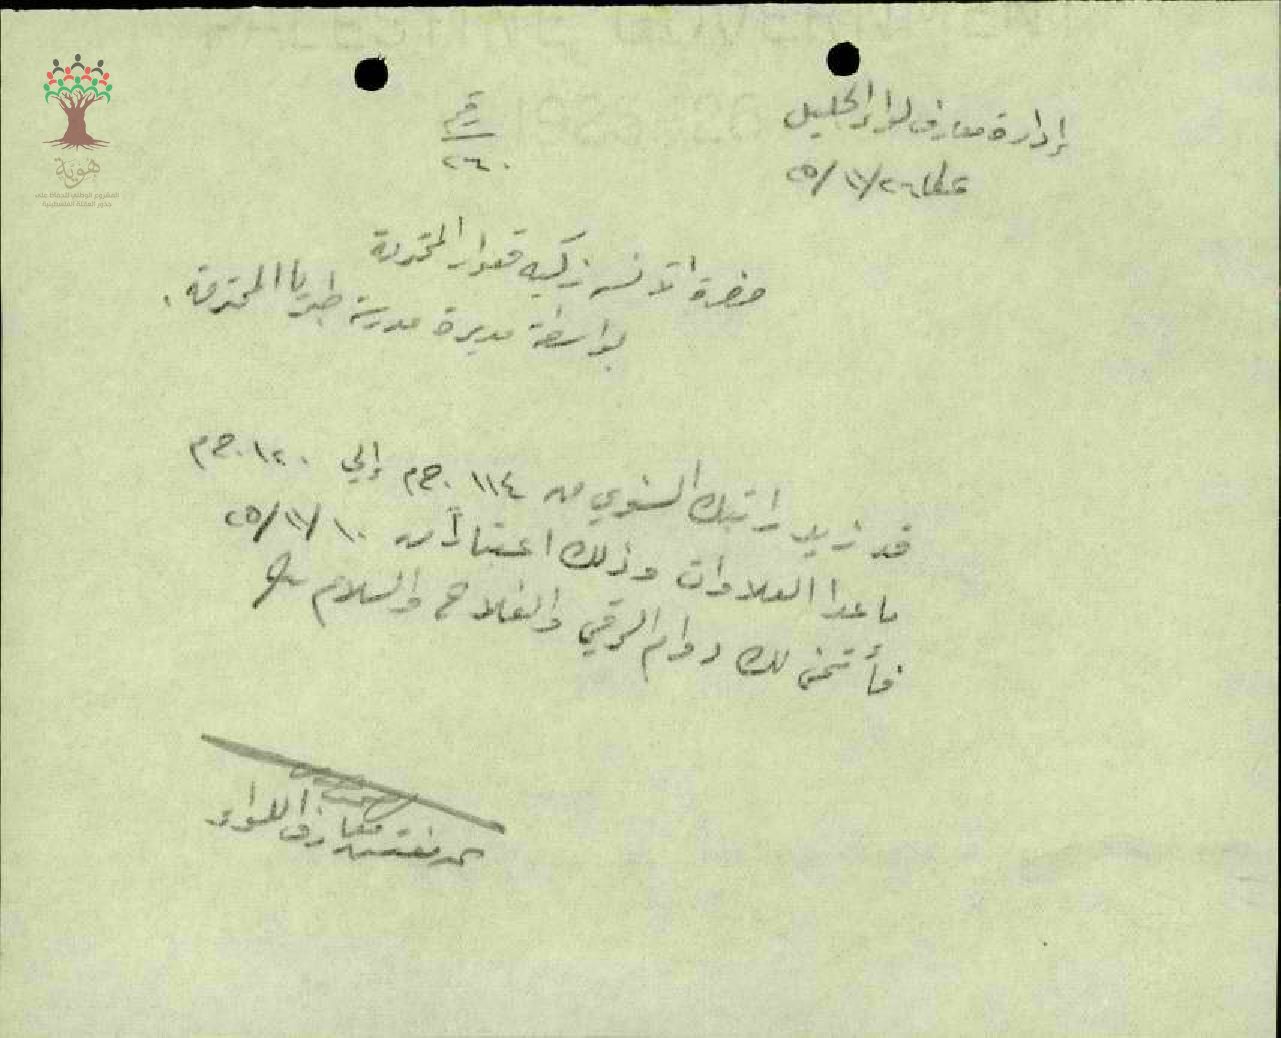 هوية
المشروع الوطني للحفاظ على
جذور العائلة الفلسطينية
إدارة معارف لواء الجليل
عكا ٢٦/١١/٢٥
رقم
٢٦٠
حضرة الآنسه زكيه قعوار المحترمة
بواسطة مديرة مدرسة طبريا المحترمة .
قد زيد راتبك السنوي من ١١٤ ج.م إلى ١٢٠ ج.م
ما عدا العلاوات وذلك اعتباراً من ١٠/١١/٢٥
فأتمنى لك دوام الرقي والفلاح والسلام
مفتش معارف اللواء